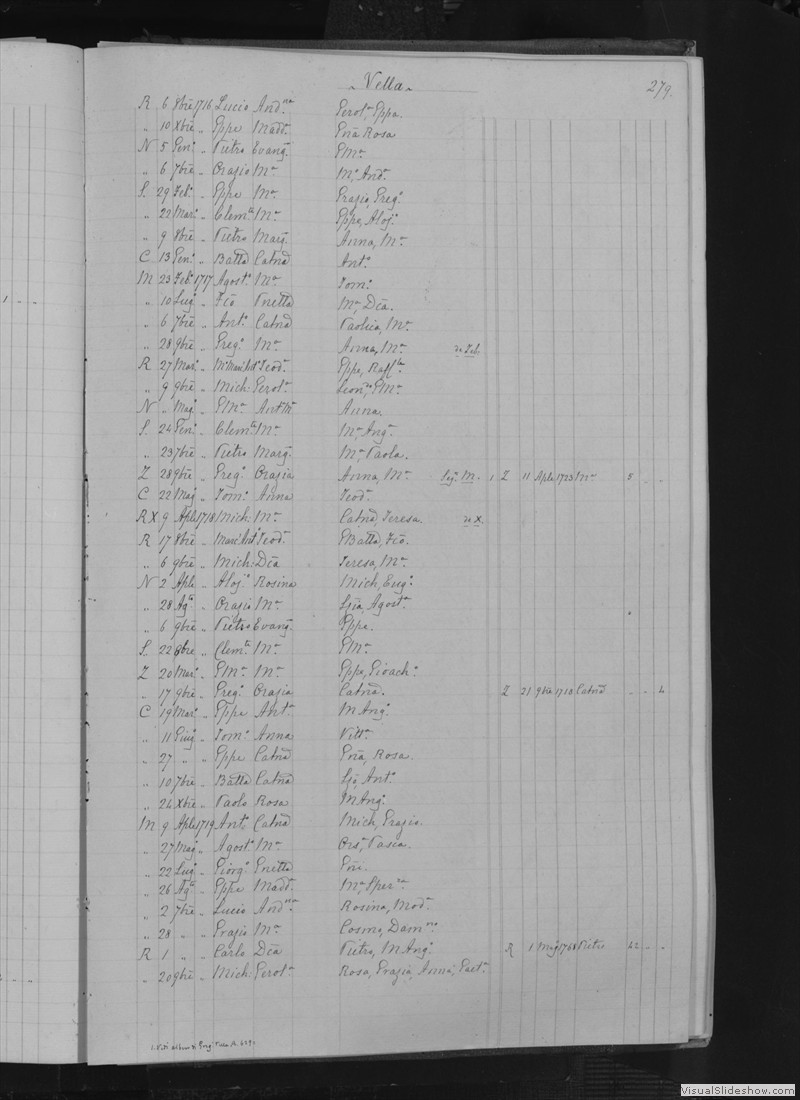 Vella
279.
R 6 8bre 1716 Lucio And.na Gerol.a, Eppa.
" 10 Xbre " Eppe Madd.a Gna Rosa
N 5 Gen.o " Pietro Evang.a GM.a
" 6 7bre " Orazio M.a M.a And.a
S. 29 Feb.o " Eppe M.a Grazio, Greg.o
" 22 Mar.o " Clem.te M.a Eppe, Aloj.a
" 9 8bre " Pietro Marg. Anna, M.a
C 13 Gen.o " Batta Catnd Ant.a
M 23 Feb.o 1717 Agost.o M.a Tom.o
" 10 Lug.o " Fco Vnetta M.a Dca.
" 6 7bre " Ant.o Catnd Paolica, M.a
" 28 9bre " Greg.o M.a Anna, M.a
R 27 Mar.o " Teod.a Eppe, Raff.la
" 9 9bre " Mich: Gerol.a Leon.da, GM.a
N " Mag.o " GM.a Ant.M.a Anna.
S. 24 Gen.o " Clem.te M.a M.a Ang.a
" 23 7bre " Pietro Marg. M.a Paola.
Z 28 9bre " Greg.o Orazia Anna, M.a 1 Z 11 Aple 1723 M.a 5 " "
C 22 Mag. " Tom.o Anna Teod.
RX 9 Aple 1718 Mich: M.a Catnd, Teresa. di X.
R 17 8bre " Teod.a GBatta, Fco.
" 6 9bre " Mich: Dca Teresa, M.a
N 2 Aple " Aloj.o Rosina Mich, Eug.o
" 28 Ag.to " Orazio M.a Lja, Agost.a
" 6 9bre " Pietro Evang. Eppe.
S. 22 8bre " Clem.te M.a GM.a
Z 20 Mar.o " GM.a M.a Eppe, Gioach.o
" 17 9bre " Greg.o Orazia Catnd. Z 21 9bre Catnd " " 4
C 19 Mar.o " Eppe Ant.a M Ang.o
" 11 Giug. " Tom.o Anna Vitt.a
" 27 " " Eppe Catnd Gna, Rosa.
" 10 7bre " Batta Catnd Ljo, Ant.o
" 24 Xbre " Paolo Rosa M Ang.o
M 9 Aple 1719 Ant.o Catnd Mich, Grazio.
" 27 Mag. " Agost.o M.a Ors.a, Pasca.
" 22 Lug.o " Giorg.o Gnetta Gni.
" 26 Ag.to " Eppe Madd.a M.a, Sper.za
" 2 7bre " Lucio And.na Rosina, Mod.a
" 28 " " Grazio M.a Cosmo, Dam.no
R 1 " " Carlo Dca Pietro, M Ang.o R 1 Mag. 1768 Pietro 42 " "
" 20 9bre " Mich: Gerol.a Rosa, Grazia, Anna, Gaet.a